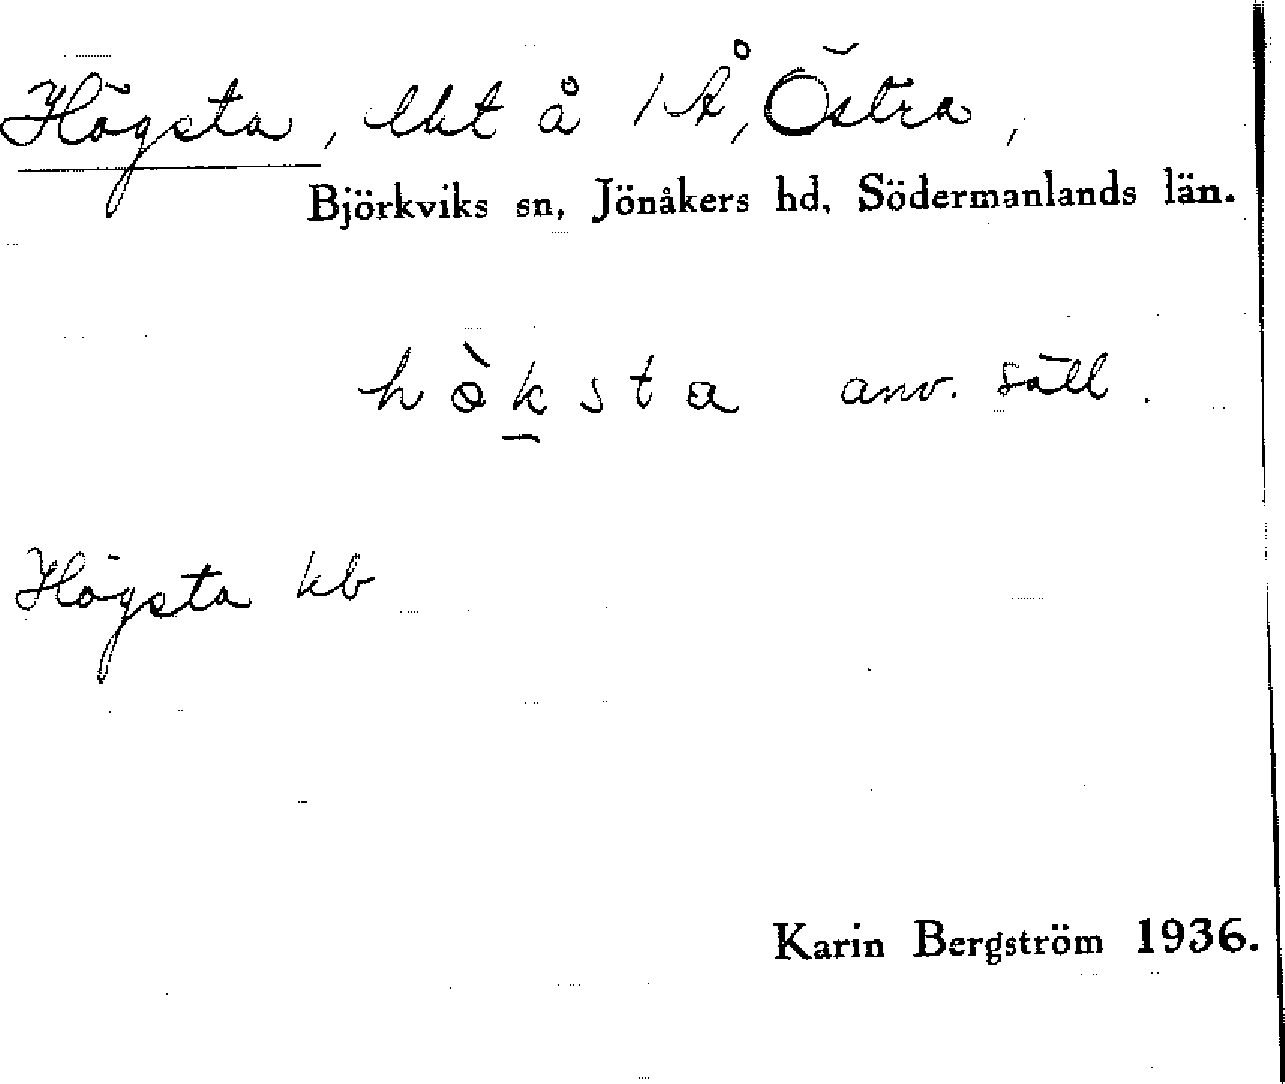 Högsta, lht å 1 Å, Östra,
Björkviks sn, Jönåkers hd, Södermanlands län.
hö̀ksta anv. säll.
Högsta kb
Karin Bergström 1936.